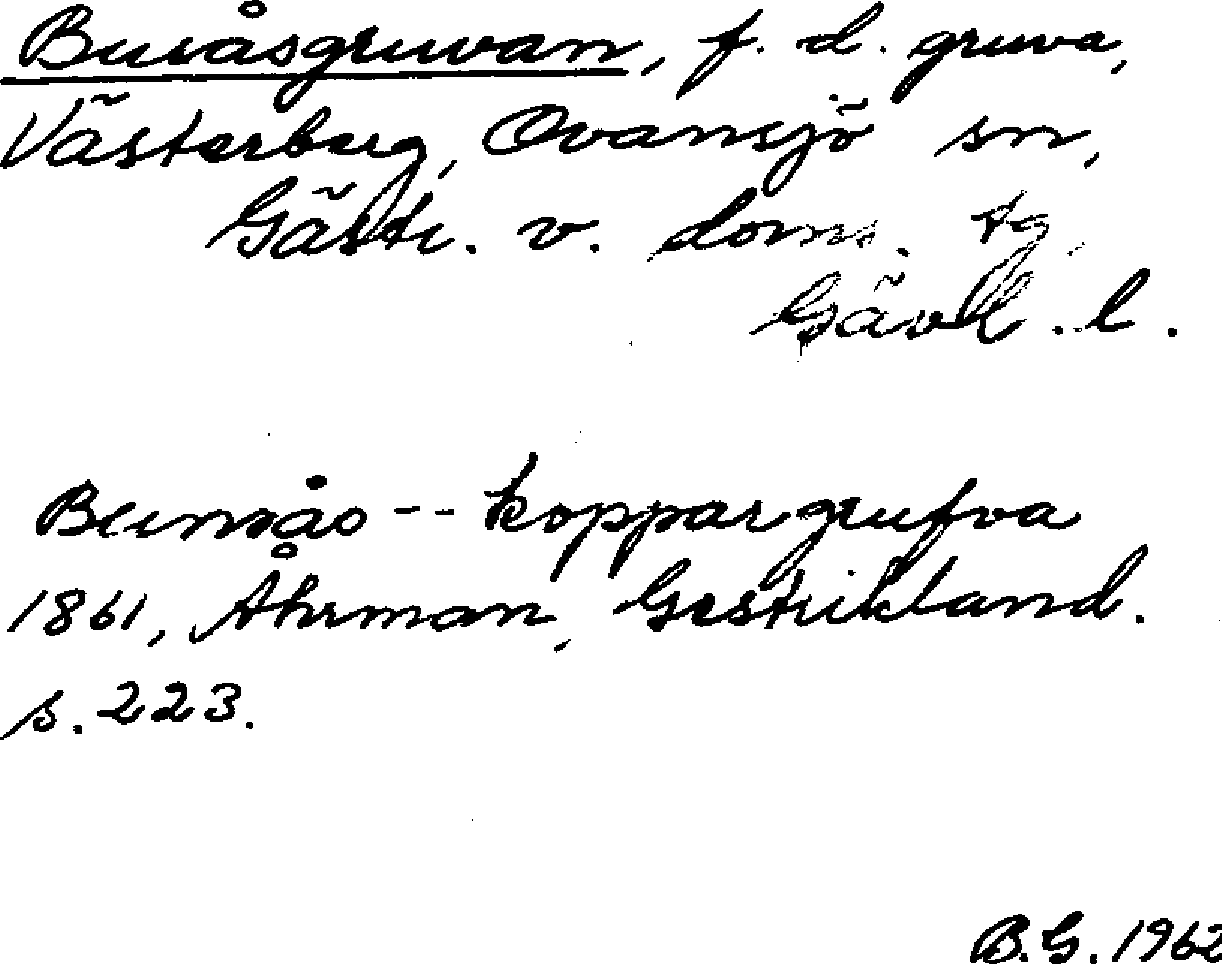 Buråsgruvan, f. d. gruva,
Västerberg, Ovansjö sn,
Gästr. v. doms. tg,
Gävl. l.
-- koppargrufva
1861, Åhrman, Gestrikland.
s. 223.
B.G. 1962